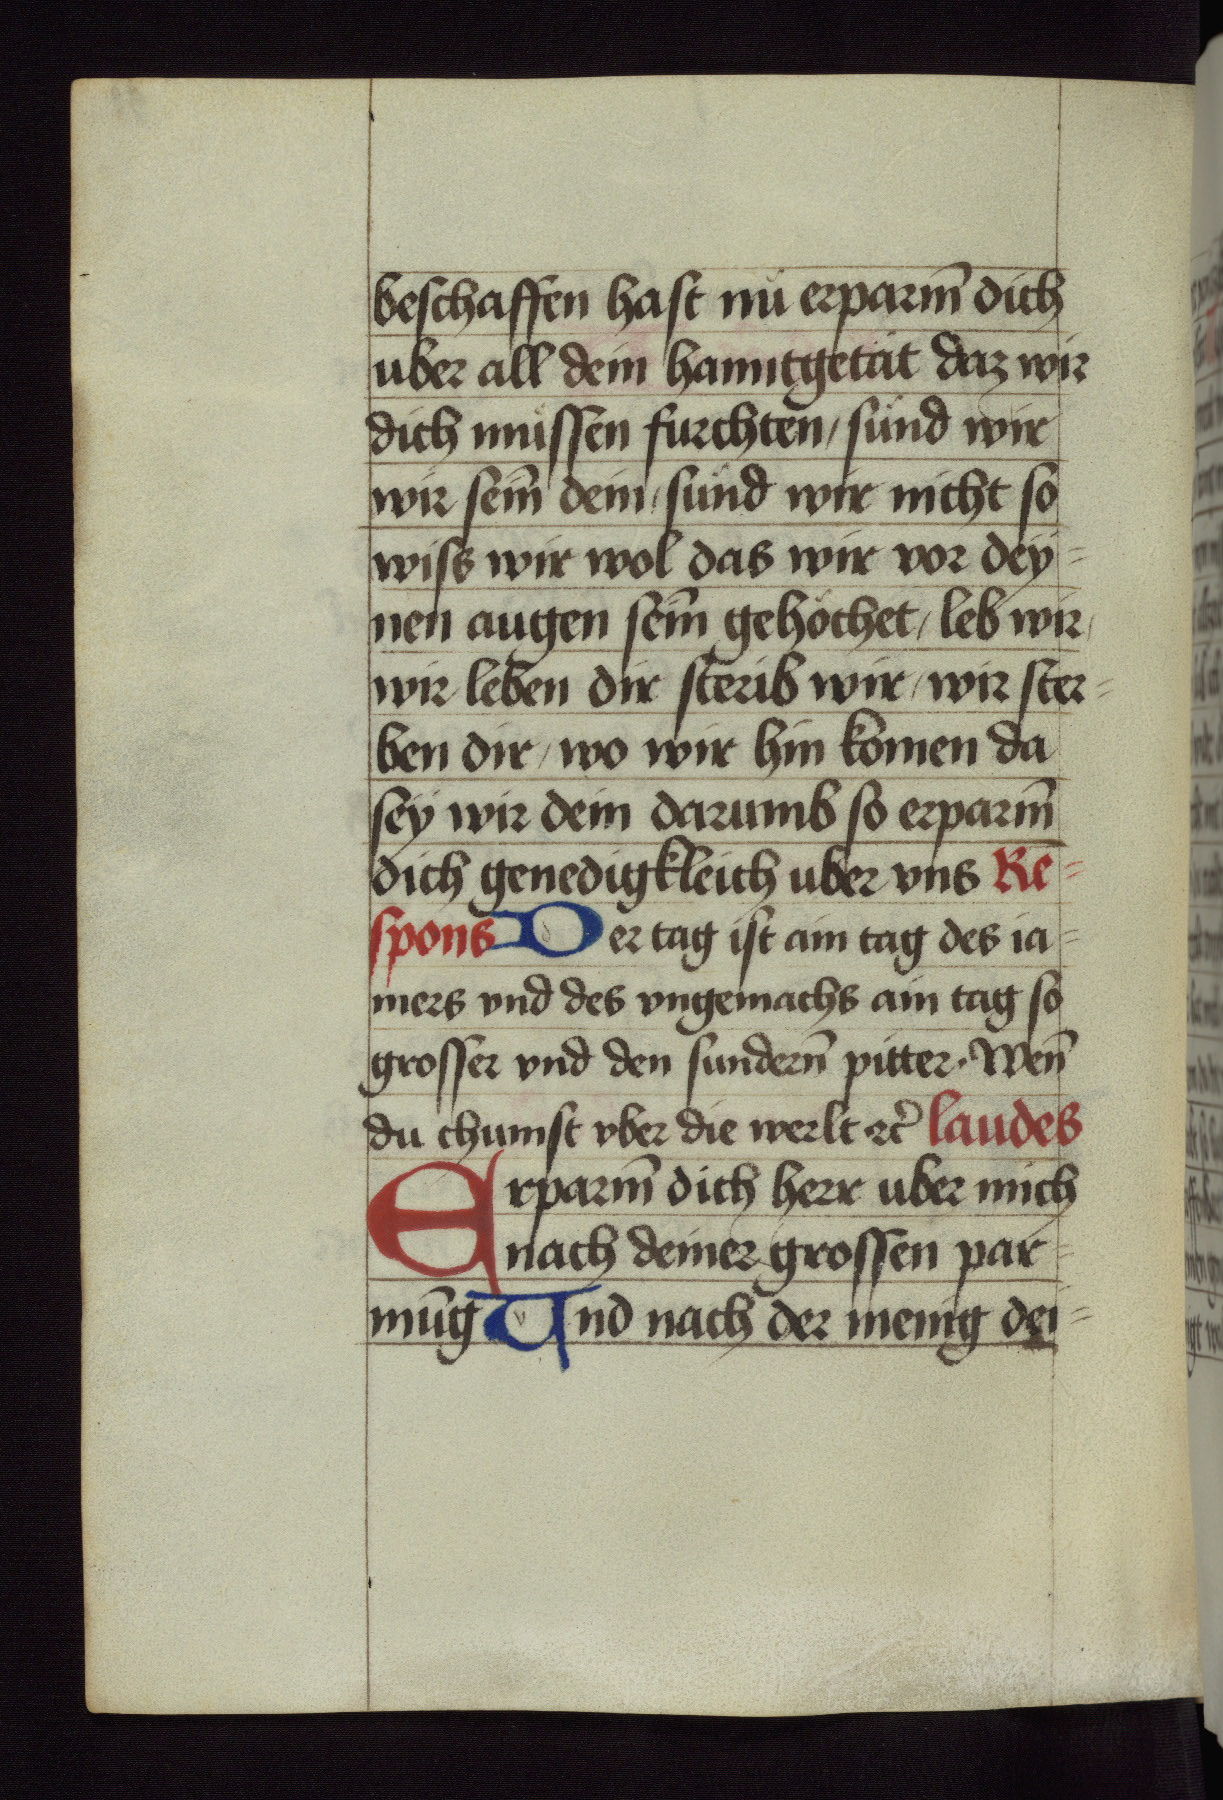 beschaffen hast nü erparm̄ dich
uber all dein hanntgetät daz wir
dich müssen furchten / sünd wir
wir sein̄ dein / sünd wir nicht so
wiss wir wol das wir vor dey=
nen augen sein̄ gehöchet / leb wir /
wir leben dir sterib wir / wir ster=
ben dir / wo wir hin kömen da
sey wir dein darumb so erparm̄
dich genedigkleich uber vns Re=
spons Der tag ist ain tag des ia=
mers vnd des vngemachs ain tag so
grosser vnd den sundern̄ pitter · Wen̄
du chumst vber die werlt ⁊c̄ laudes
Erparm̄ dich herr uber mich
nach deiner grossen par=
mūg Und nach der menig dei=